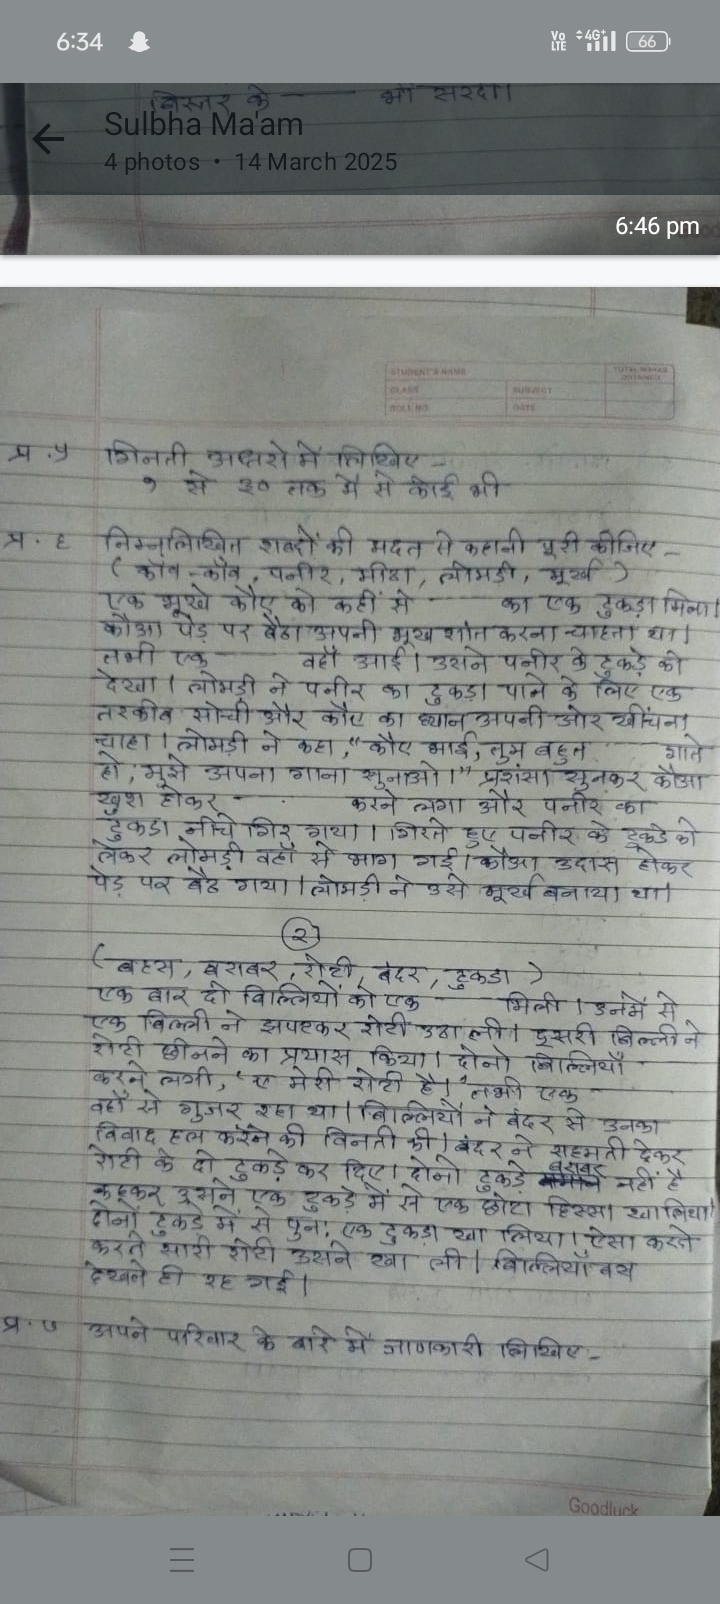 6:34
Vo LTE 4G+ 66
बिस्तर के —— भी सरदी।
Sulbha Ma'am
4 photos • 14 March 2025
6:46 pm
STUDENT'S NAME
TOTAL MARKS OBTAINED
CLASS SUBJECT
ROLL NO. DATE
प्र.५ गिनती अक्षरो में लिखिए –
१ से ३० तक में से कोई भी
प्र.६ निम्नलिखित शब्दों की मदत से कहानी पूरी कीजिए –
( काँव-काँव, पनीर, मीठा, लोमड़ी, मूर्ख )
एक भूखे कौए को कहीं से —— का एक टुकड़ा मिला।
कौआ पेड़ पर बैठा अपनी भूख शांत करना चाहता था।
तभी एक —— वहाँ आई। उसने पनीर के टुकड़े को
देखा। लोमड़ी ने पनीर का टुकड़ा पाने के लिए एक
तरकीब सोची और कौए का ध्यान अपनी ओर खींचना
चाहा। लोमड़ी ने कहा, "कौए भाई, तुम बहुत —— गाते
हो, मुझे अपना गाना सुनाओ।" प्रशंसा सुनकर कौआ
खुश होकर —— करने लगा और पनीर का
टुकडा नीचे गिर गया। गिरते हुए पनीर के टुकडे को
लेकर लोमड़ी वहाँ से भाग गई। कौआ उदास होकर
पेड़ पर बैठ गया। लोमड़ी ने उसे मूर्ख बनाया था।
(२)
( बहस, बराबर, रोटी, बंदर, टुकडा )
एक बार दो बिल्लियों को एक —— मिली। उनमें से
एक बिल्ली ने झपटकर रोटी उठा ली। दुसरी बिल्ली ने
रोटी छीनने का प्रयास किया। दोनो बिल्लियाँ ——
करने लगी, "ए मेरी रोटी है।" तभी एक ——
वहाँ से गुजर रहा था। बिल्लियों ने बंदर से उनका
विवाद हल करने की विनती की। बंदर ने सहमती देकर
रोटी के दो टुकड़े कर दिए। दोनो टुकड़े बराबर नहीं है
कहकर उसने एक टुकड़े में से एक छोटा हिस्सा खा लिया।
दोनों टुकडे में से पुनः एक टुकड़ा खा लिया। ऐसा करते
करते सारी रोटी उसने खा ली। बिल्लियाँ बस
देखते ही रह गई।
प्र.७ अपने परिवार के बारे में जाणकारी लिखिए –
Goodluck